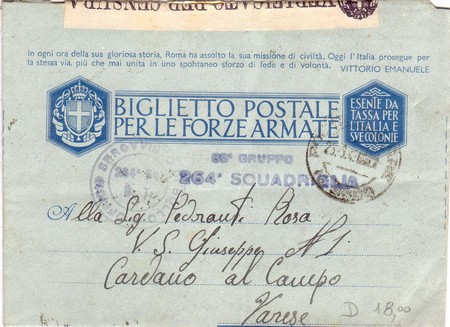 VERIFICATO PER CENSURA
In ogni ora della sua gloriosa storia, Roma ha assolto la sua missione di civiltà. Oggi l'Italia prosegue per
la stessa via, più che mai unita in uno spontaneo sforzo di fede e di volontà. VITTORIO EMANUELE
BIGLIETTO POSTALE
PER LE FORZE ARMATE
ESENTE DA
TASSA PER
L'ITALIA E
SVE COLONIE
GRUPPO
264ª SQUADRIGLIA
Alla Sig. Pedranti Rosa
V. S. Giuseppe N 1
Cardano al Campo
Varese
D 18,00